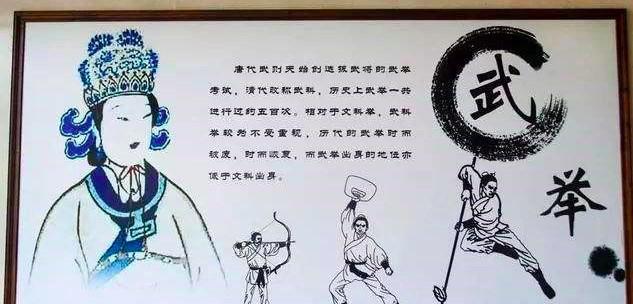 唐代武则天始创选拔武将的武举
考试，清代改称武科，历史上武举一共
进行过约五百次。相对于文科举，武科
举较为不受重视，历代的武举时而
被废，时而恢复，而武举出身的地位亦
低于文科出身。
武
举